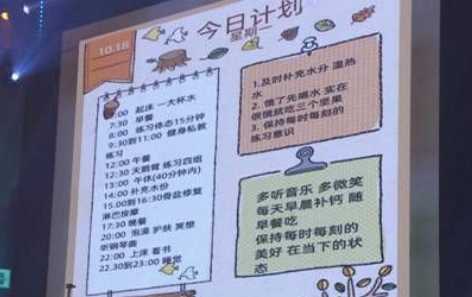 今日计划
星期一
10.18
:00 起床 一大杯水
7:30 早餐
8:00 练习体态15分钟
9:30到11:00 健身私教
练习
12:00 午餐
12:30 天鹅臂 练习四组
13:00 午休(40分钟内)
14:00 补充水份
15.00到16:30骨盆修复
淋巴按摩
17:30 晚餐
20:00 泡澡 护肤 冥想
听钢琴曲
22:00 上床 看书
22.30到23:00 睡觉
1.及时补充水分 温热
水
2. 饿了先喝水 实在
很饿就吃三个坚果
3. 保持每时每刻的
练习意识
多听音乐 多微笑
每天早晨补钙 随
早餐吃
保持每时每刻的
美好 在当下的状
态